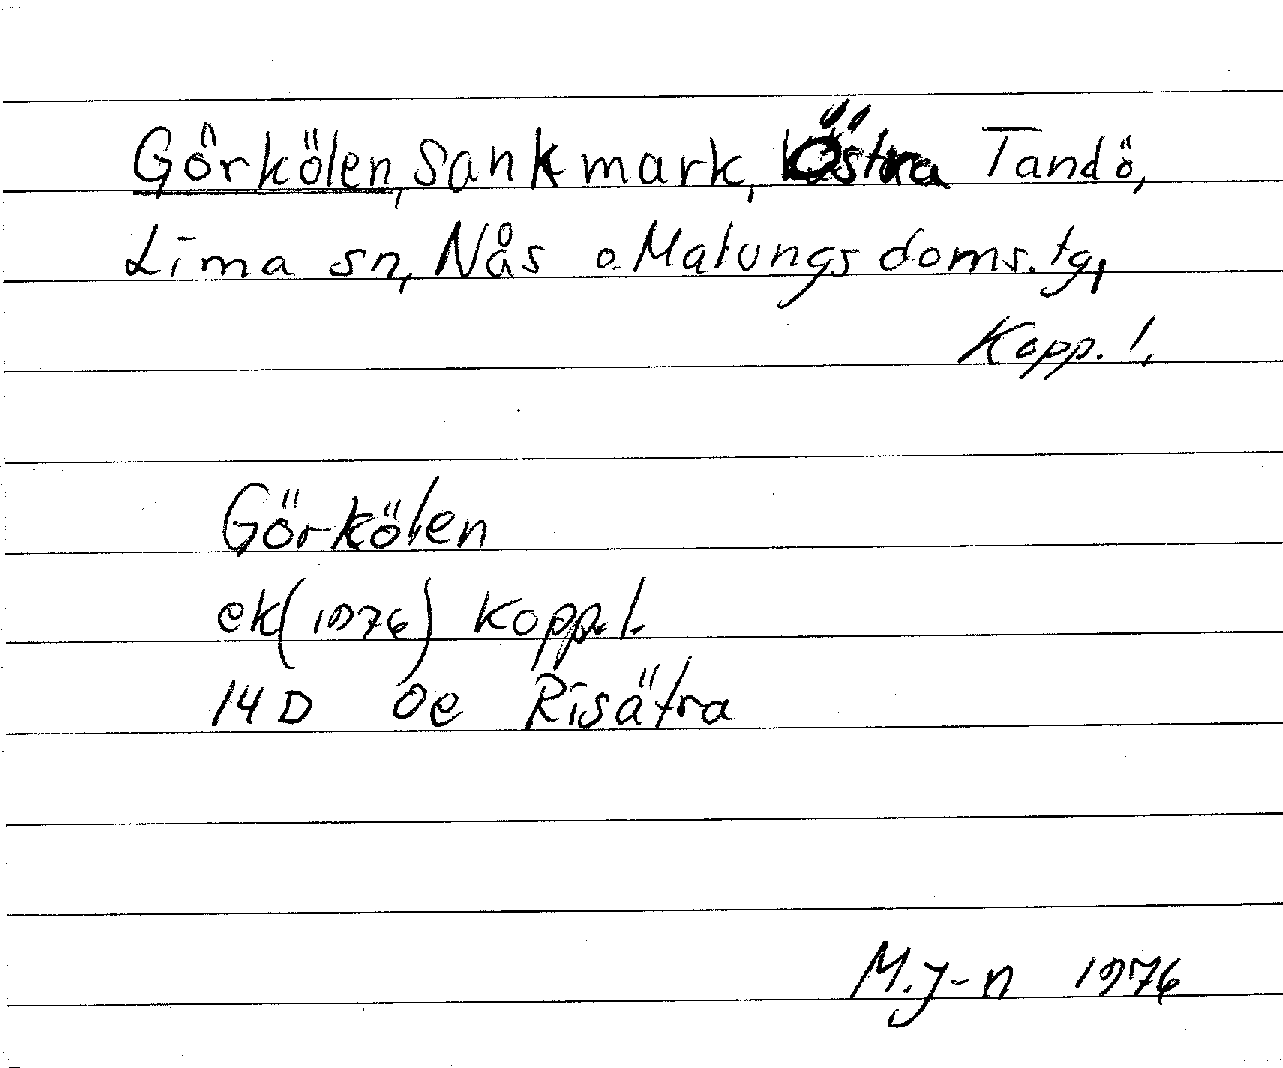 Görkölen, sankmark, Östra Tandö,
Lima sn, Nås o Malungs doms. tg,
Kopp. l.
Görkölen
ek (1976) Kopp. l.
14 D 0e Risätra
M.J-n 1976